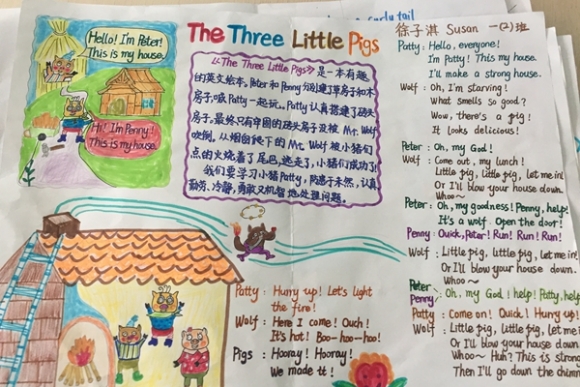 curly tail
Hello! I'm Peter!
This is my house.
Hi! I'm Penny!
This is my house.
The Three Little Pigs
《The Three Little Pigs》是一本有趣
的英文绘本。Peter 和 Penny 分别建了草房子和木
房子,喊 Patty 一起玩。Patty 认真搭建了砖头
房子。最终只有牢固的砖头房子没被 Mr. Wolf
吹倒。从烟囱爬下的 Mr. Wolf 被小猪们
点的火烧着了尾巴,逃走了,小猪们成功了!
我们要学习小猪 Patty,防患于未然,认真
勤劳、冷静,勇敢又机智地处理问题。
徐子淇 Susan 一(2)班
Patty: Hello, everyone!
I'm Patty! This my house.
I'll make a strong house.
Wolf: Oh, I'm starving!
What smells so good?
Wow, there's a pig!
It looks delicious!
Peter: Oh, my God!
Wolf: Come out, my lunch!
Little pig, little pig, let me in!
Or I'll blow your house down.
Whoo~
Peter: Oh, my goodness! Penny, help!
It's a wolf. Open the door!
Penny: Quick, Peter! Run! Run! Run!
Wolf: Little pig, little pig, let me in!
Or I'll blow your house down.
Whoo~
Peter Penny: Oh, my God! help! Patty, help
Patty: Come on! Quick! Hurry up!
Wolf: Little pig, little pig, let me in!
Or I'll blow your house down
Whoo~ Huh? This is strong
Then I'll go down the chimn
Patty: Hurry up! Let's light
the fire!
Wolf: Here I come! Ouch!
It's hot! Boo-hoo-hoo!
Pigs: Hooray! Hooray!
We made it!